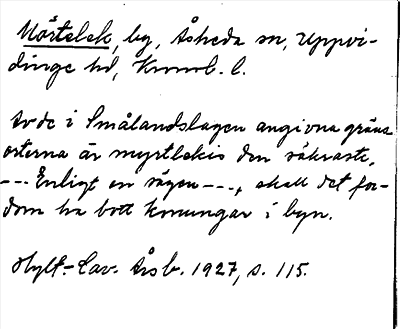 Mörtelek, by, Åsheda sn, Uppvi-
dinge hd, Kronob. l.
Av de i Smålandslagen angivna gräns
orterna är myrtlekis den säkraste,
--- Enligt en sägen ---, skall det for-
dom ha bott konungar i byn.
Hylt.-Cav. Årsb. 1927, s. 115.